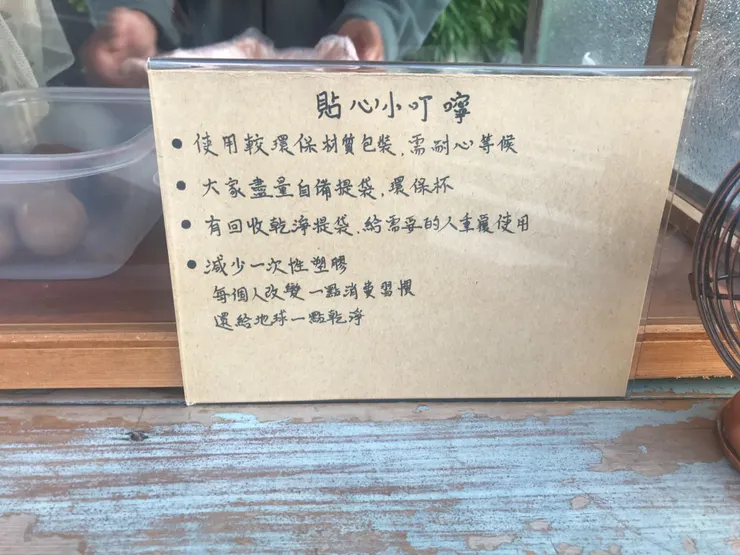 貼心小叮嚀
● 使用較環保材質包裝,需耐心等候
● 大家盡量自備提袋,環保杯
● 有回收乾淨提袋,給需要的人重覆使用
● 減少一次性塑膠
每個人改變一點消費習慣
還給地球一點乾淨